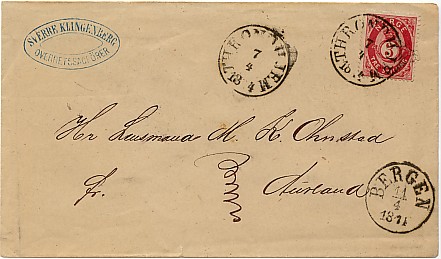 SVERRE KLINGENBERG
OVERRETSSAGFÖRER
THRONDHJEM
7
4
THRONDHJEM
7
NORGE
3
Hr Lensmand M. K. Ohnstad
fr.
Aurland
BERGEN
11
4
1871